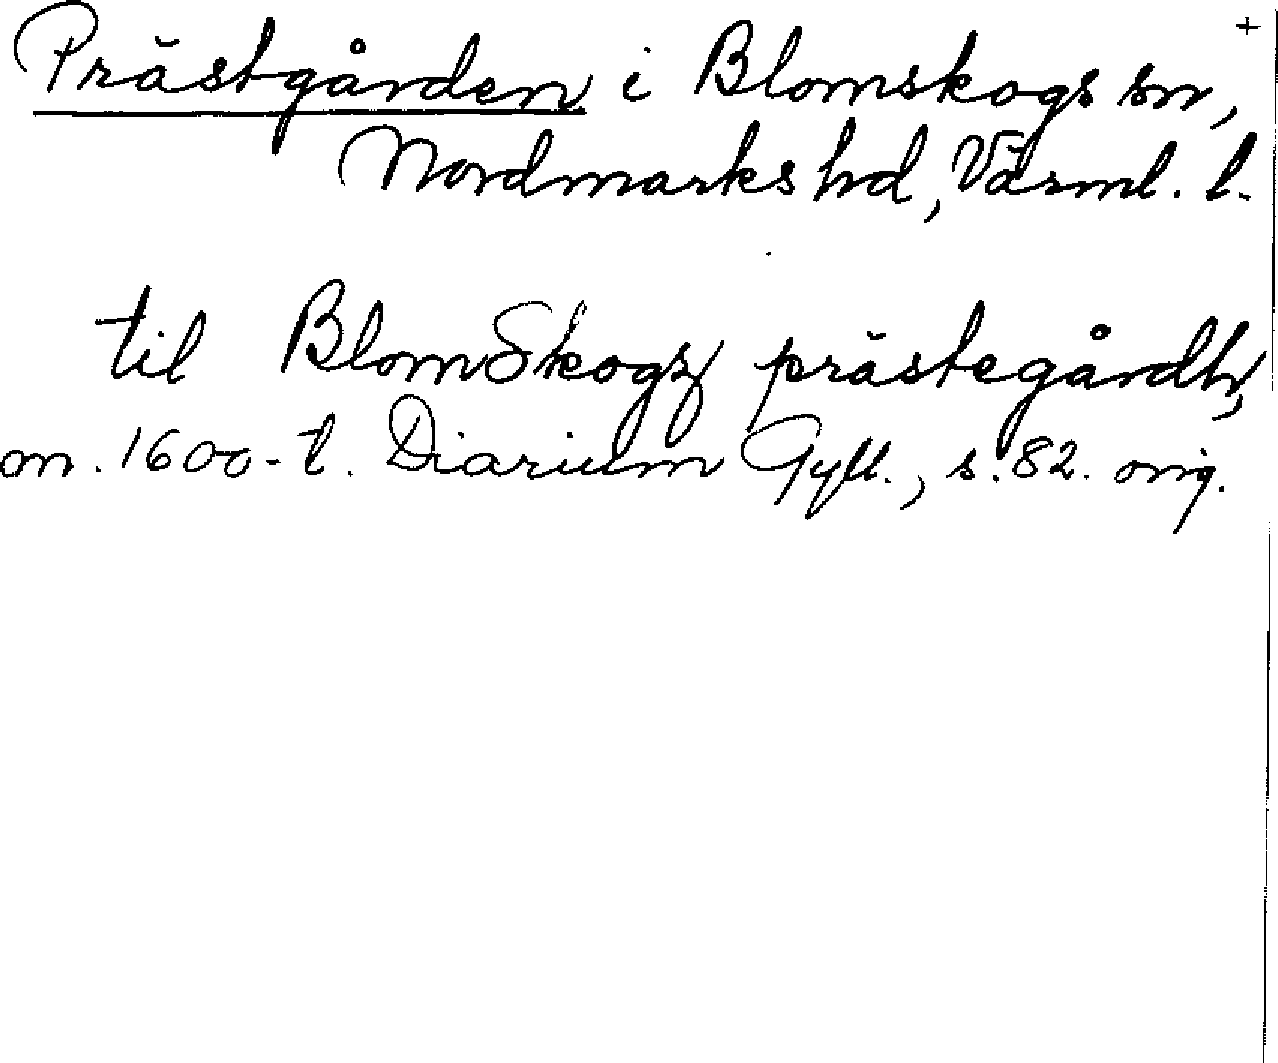 +
Prästgården i Blomskogs sn,
Nordmarks hd, Värml. l.
til BlomSkogz prästegårdh,
m. 1600-t. Diarium Gyll., s. 82. orig.